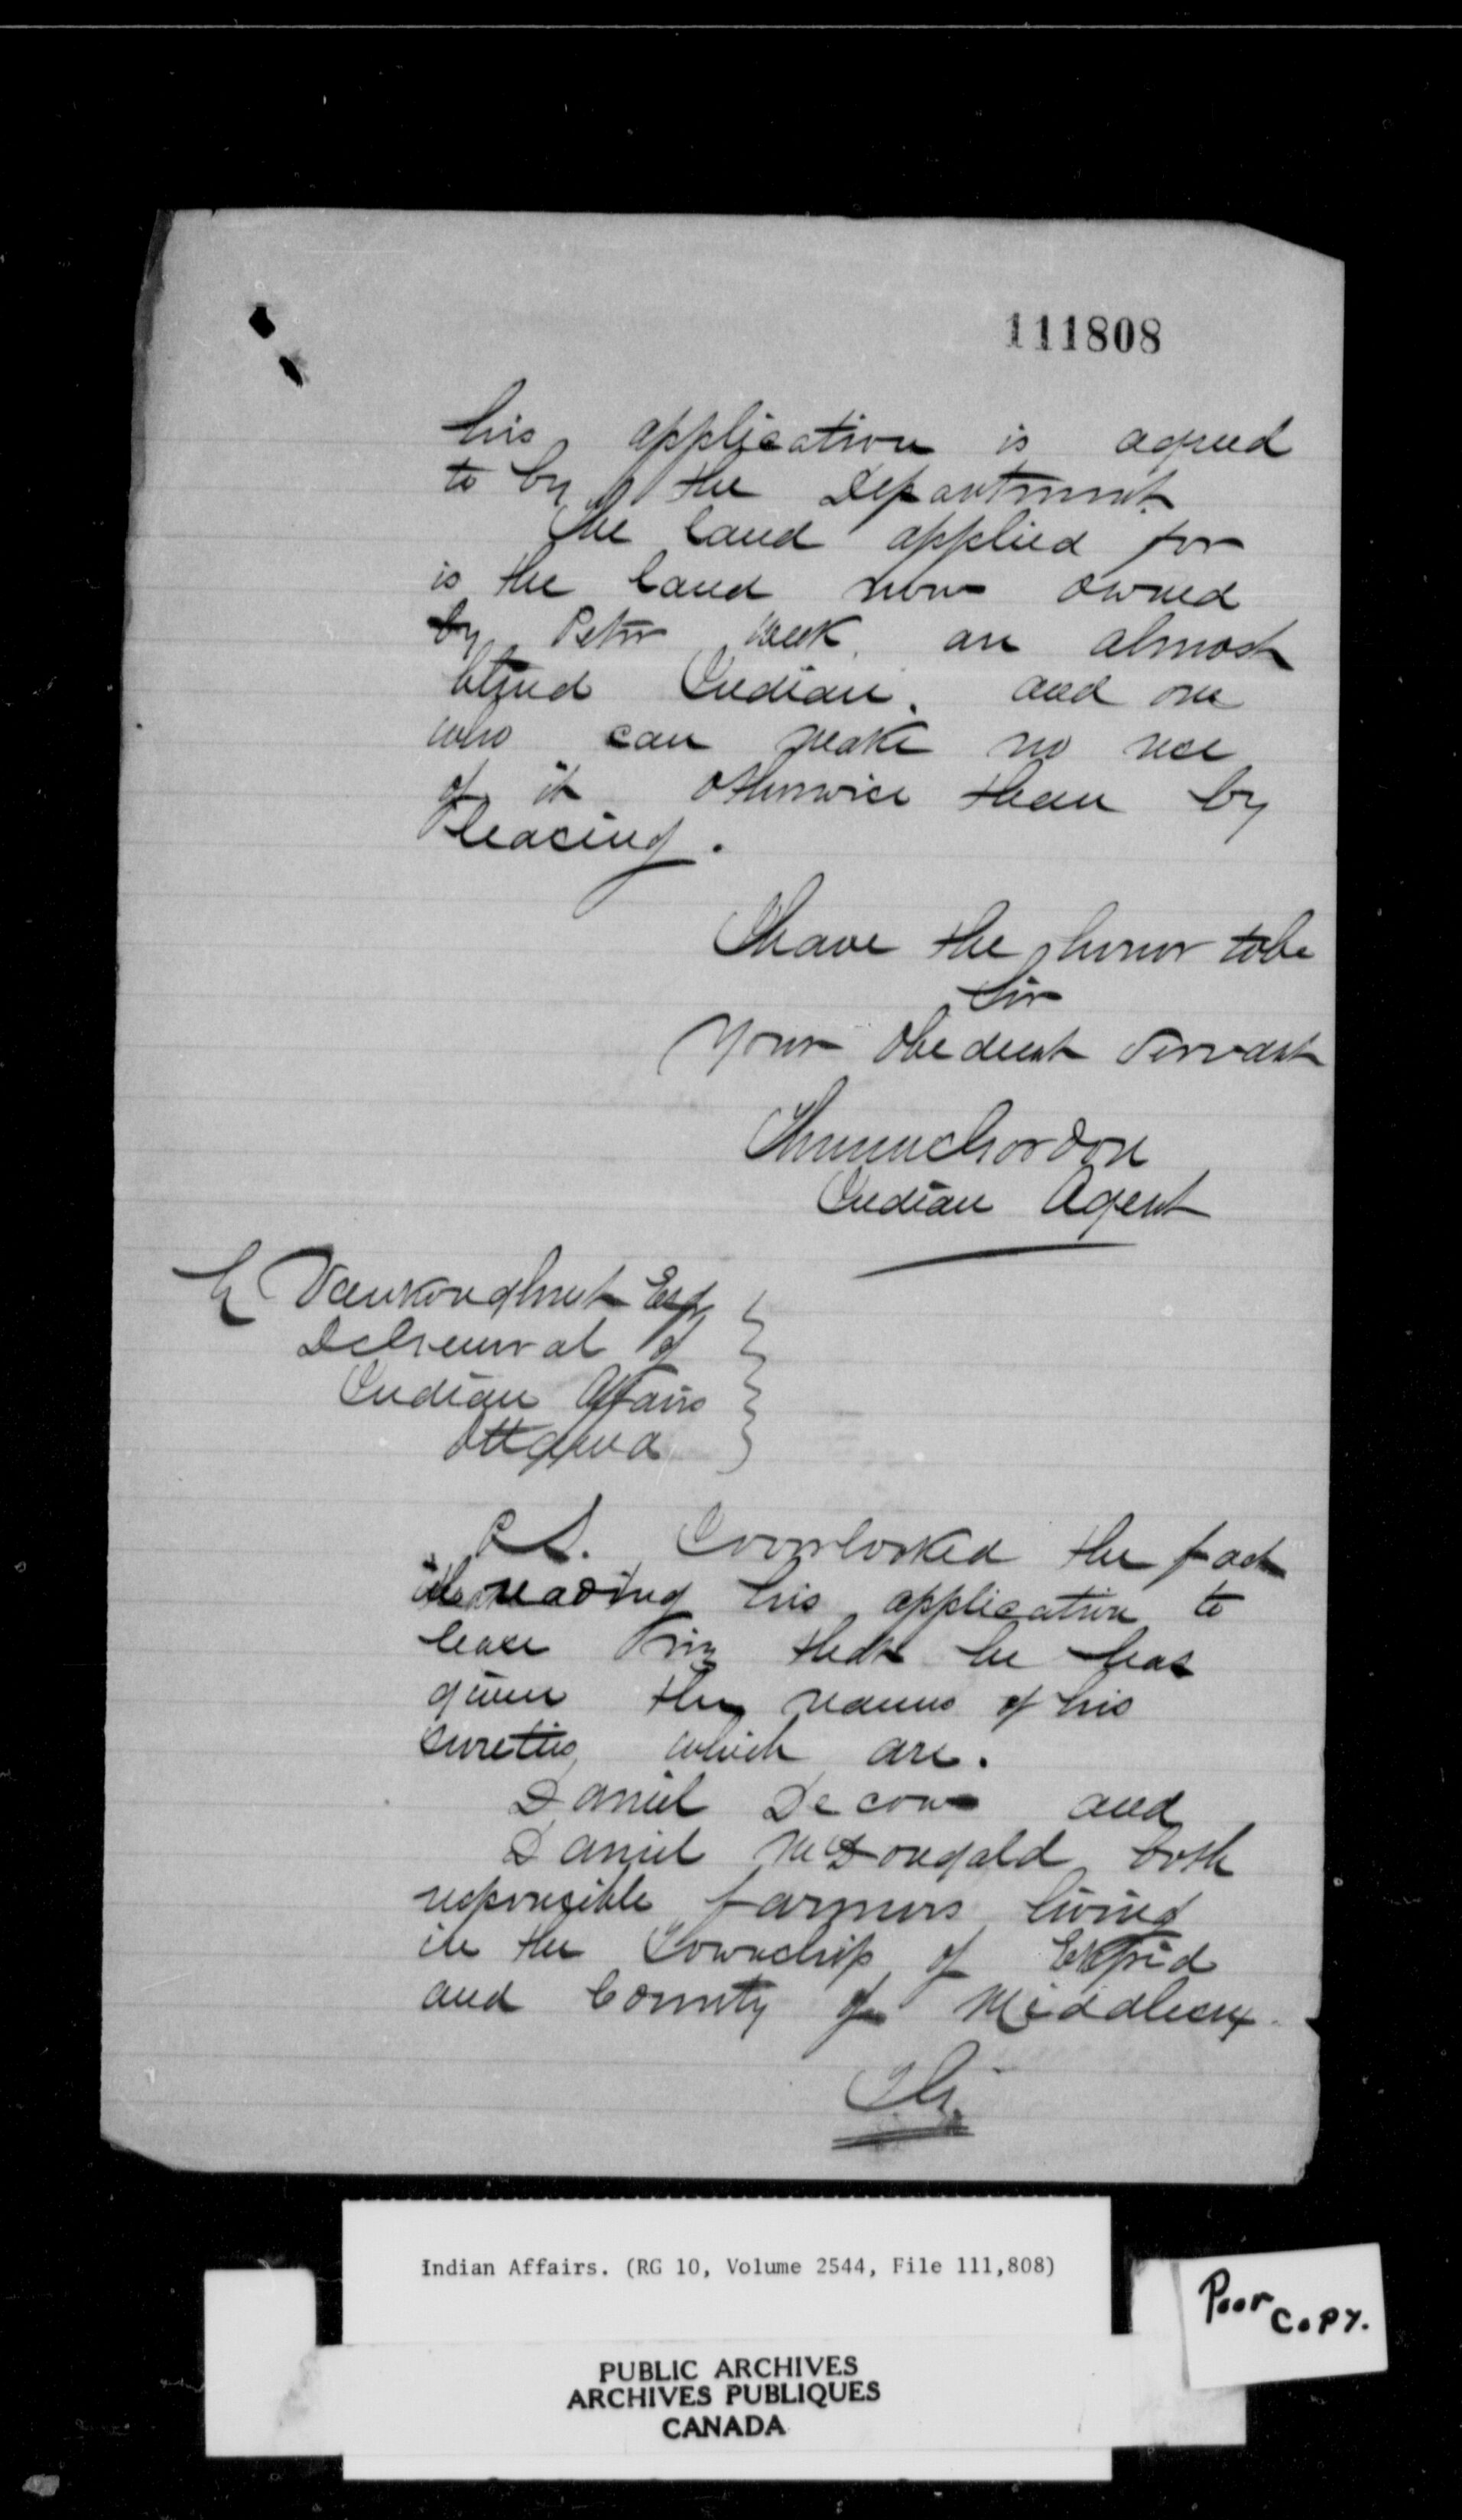 111808
his application is agreed
to by the Department.
The land applied for
is the land now owned
by Peter an almost
blind Indian. and one
who can make no use
of it otherwise than by
leasing.
I have the honor to be
Sir
Your Obedient Servant
Gordon
Indian Agent
L Vankoughnet Esq
General of
Indian Affairs
Ottawa
P.S. I overlooked the fact
in reading his application to
lease that he has
given the names of his
sureties, which are.
Daniel Decow and
Daniel McDougald both
responsible farmers living
in the Township of Ekfrid
and County of Middlesex.
Indian Affairs. (RG 10, Volume 2544, File 111,808)
Poor
COPY.
PUBLIC ARCHIVES
ARCHIVES PUBLIQUES
CANADA